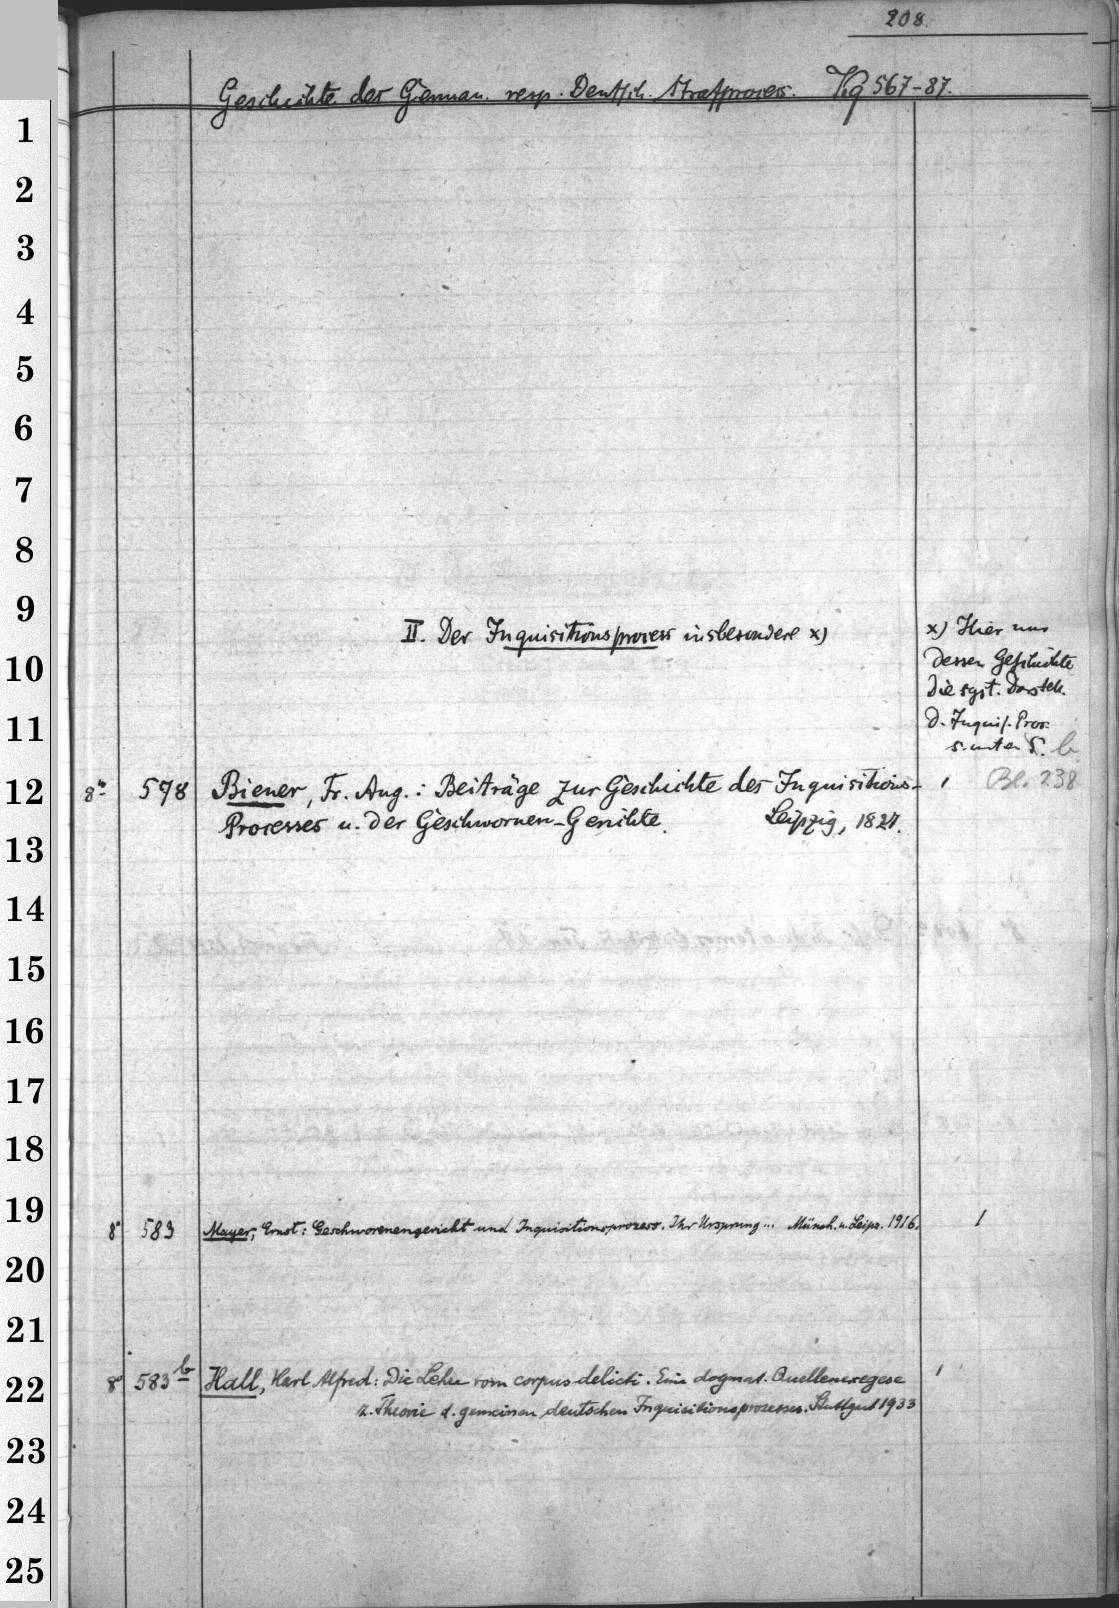 208.
Geschichte des German. resp. Deutsch. Strafprozess. Kg 567-87.
1
2
3
4
5
6
7
8
9
II. Der Inquisitionsprocess insbesondere x)
x) Hier nur
dessen Geschichte
Die syst. Darstell.
d. Inquis. Proz.
s. unten S. b
Bl. 238
10
11
12
8° 578 Biener, Fr. Aug.: Beiträge zur Geschichte des Inquisitions- 1
Processes u. der Geschwornen-Gerichte. Leipzig, 1827.
13
14
15
16
17
18
19
8° 583 Mayer, Ernst: Geschworenengericht und Inquisitionsprozess. Ihr Ursprung... Münch. u. Leipz. 1916. 1
20
21
22
8° 583 b Hall, Karl Alfred: Die Lehre vom corpus delicti. Eine dogmat. Quellenexegese 1
z. Theorie d. gemeinen deutschen Inquisitionsprozesses. Stuttgart 1933
23
24
25